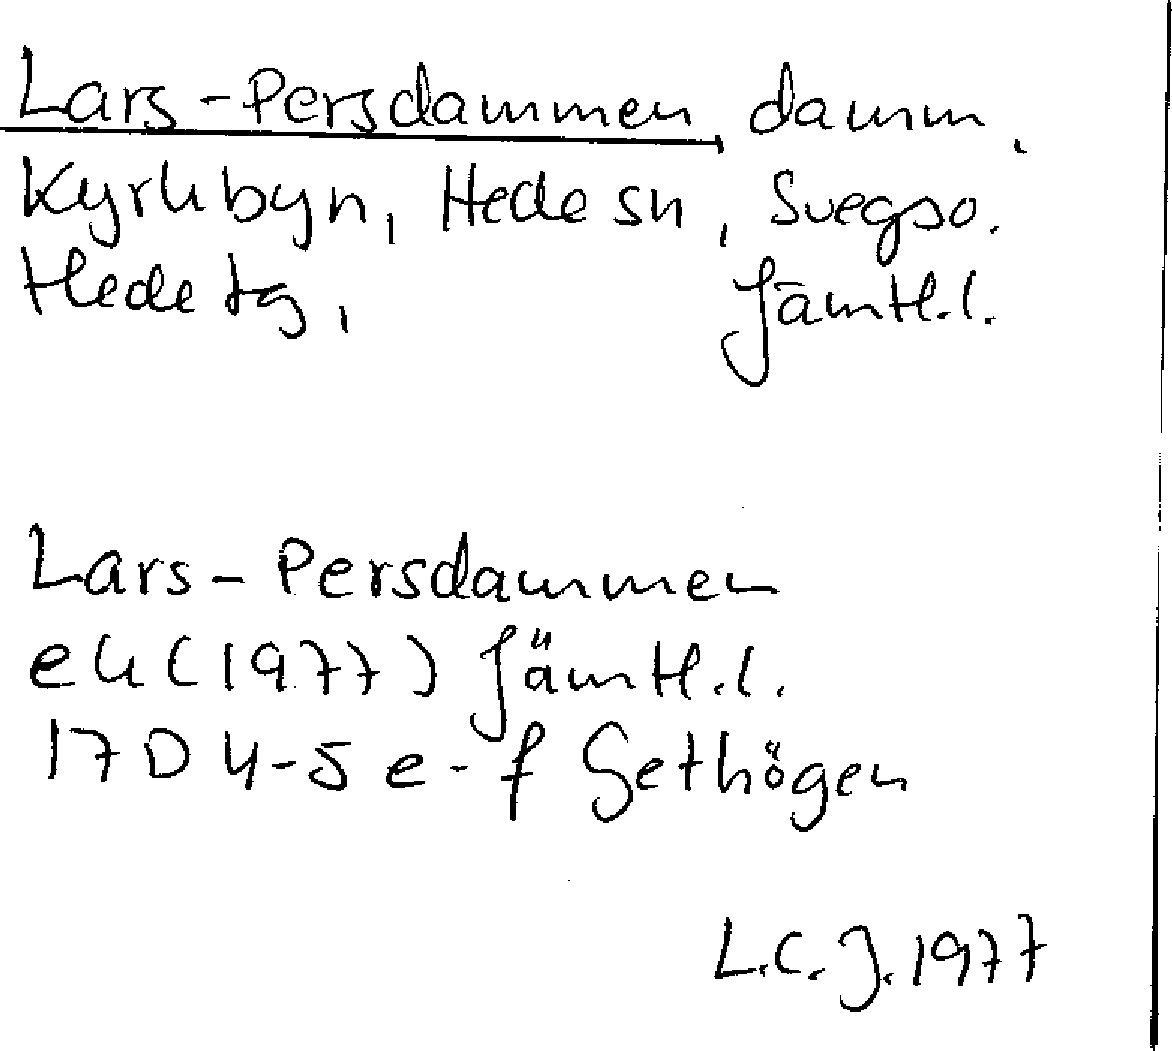 Lars-Persdammen, damm,
Kyrkbyn, Hede sn, Svegs o.
Hede tg, Jämtl.l.
Lars-Persdammen
ek (1977) Jämtl.l.
17D 4-5 e-f Gethögen
L.C.J. 1977